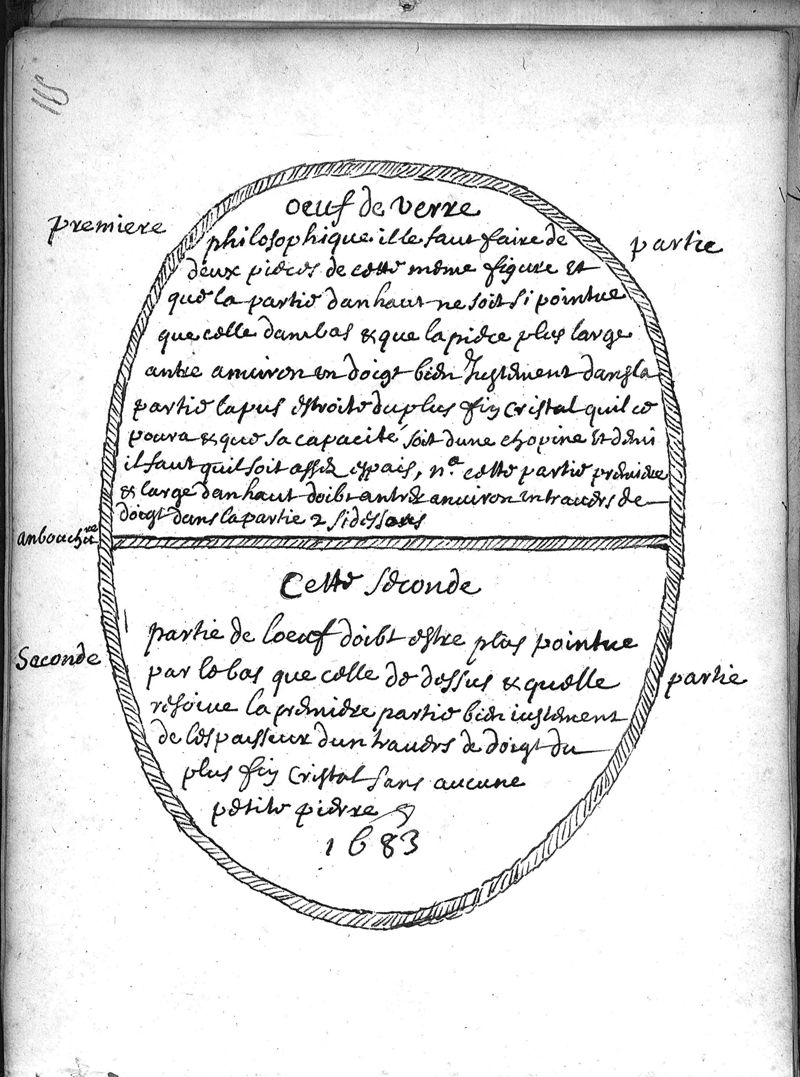 115
oeuf de verre
premiere
philosophique il le faut faire de
partie
deux pieces de cette même figure et
que la partie danhaut ne soit si pointue
que celle danbas & que la piece plus large
antre anuiron un doigt bien Justement dans la
partie la pus estroite du plus fin Cristal quil ce
poura & que sa capacité soit dune chopine et demi
il faut quil soit assez espais, nª cette partie premiere
& large danhaut doibt antrer anuiron un trauers de
doigt dans la partie 2 si dessous
anbouchure
Cette seconde
partie de loeuf doibt estre plus pointue
Seconde
par le bas que celle de dessus & quelle
partie
resoiue la premiere partie bien iustement
de lespaisseur dun trauers de doigt du
plus fin Cristal sans aucune
petite pierre
1683